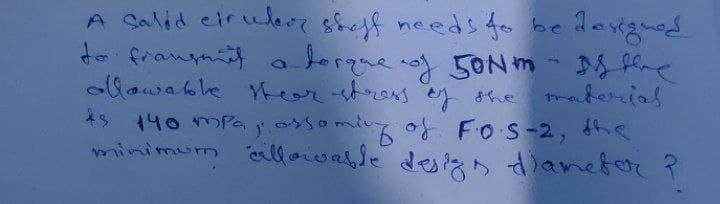 A Solid circular shaft needs to be designed
to transmit a torque of 50Nm - If the
allowable shear stress of the material
is 140 mPa, assoming of F.O.S-2, the
minimum allowable design diameter ?